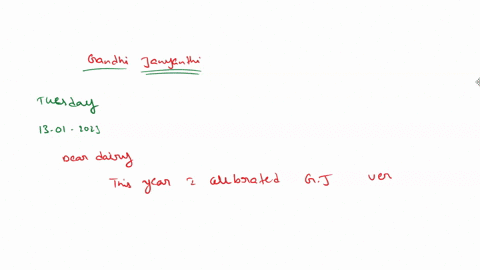 Gandhi Jenyenthi
Tuesday
13-01-2023
Dear dairy
This year I cellbrated G.J ver